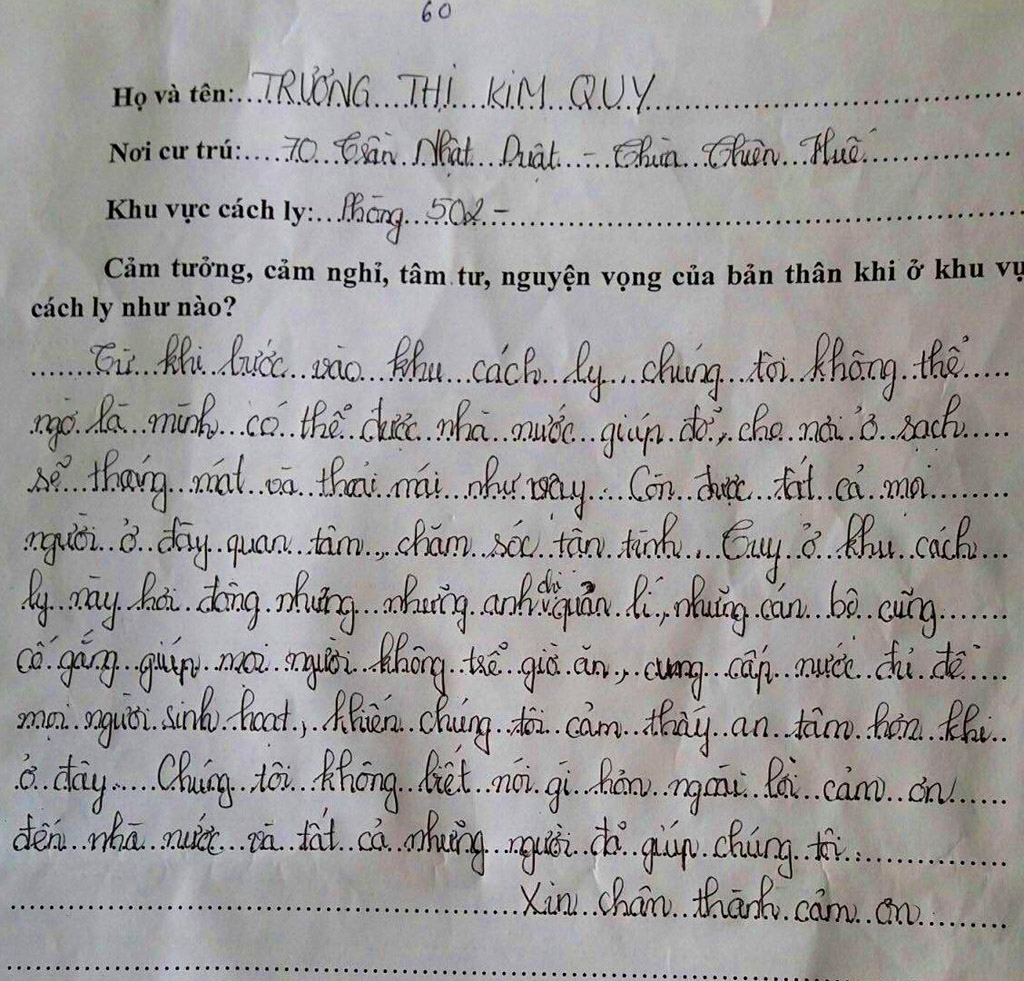 60
Họ và tên:...TRƯƠNG...THỊ...KIM...QUY...
Nơi cư trú:....70...Trần...Nhật...Duật...-...Thừa...Thiên...Huế...
Khu vực cách ly:...Phòng...502-...
Cảm tưởng, cảm nghĩ, tâm tư, nguyện vọng của bản thân khi ở khu vự
cách ly như nào?
.......Từ...khi...bước...vào...khu...cách...ly...chúng...tôi...không...thể.....
ngờ là mình có thể được nhà nước giúp đỡ, cho nơi ở sạch.....
sẽ thoáng mát và thoải mái như vậy... Còn được tất cả mọi.......
người ở đây quan tâm, chăm sóc tận tình... Tuy ở khu cách...
ly này hơi đông nhưng những anh chị quản lí, những cán bộ cũng.......
cố gắng giúp mọi người không trể giờ ăn, cung cấp nước đủ để.....
mọi người sinh hoạt, khiến chúng tôi cảm thấy an tâm hơn khi..
ở đây..... Chúng tôi không biết nói gì hơn ngoài lời cảm ơn......
đến nhà nước và tất cả những người đỡ giúp chúng tôi...............
...Xin chân thành cảm ơn.........